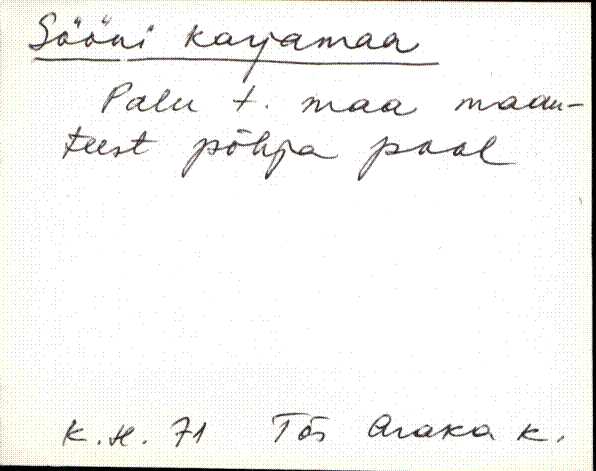 Sööni karjamaa
Palu t. maa maan-
teest põhja pool
K. H. 71 Tõs Araka k.